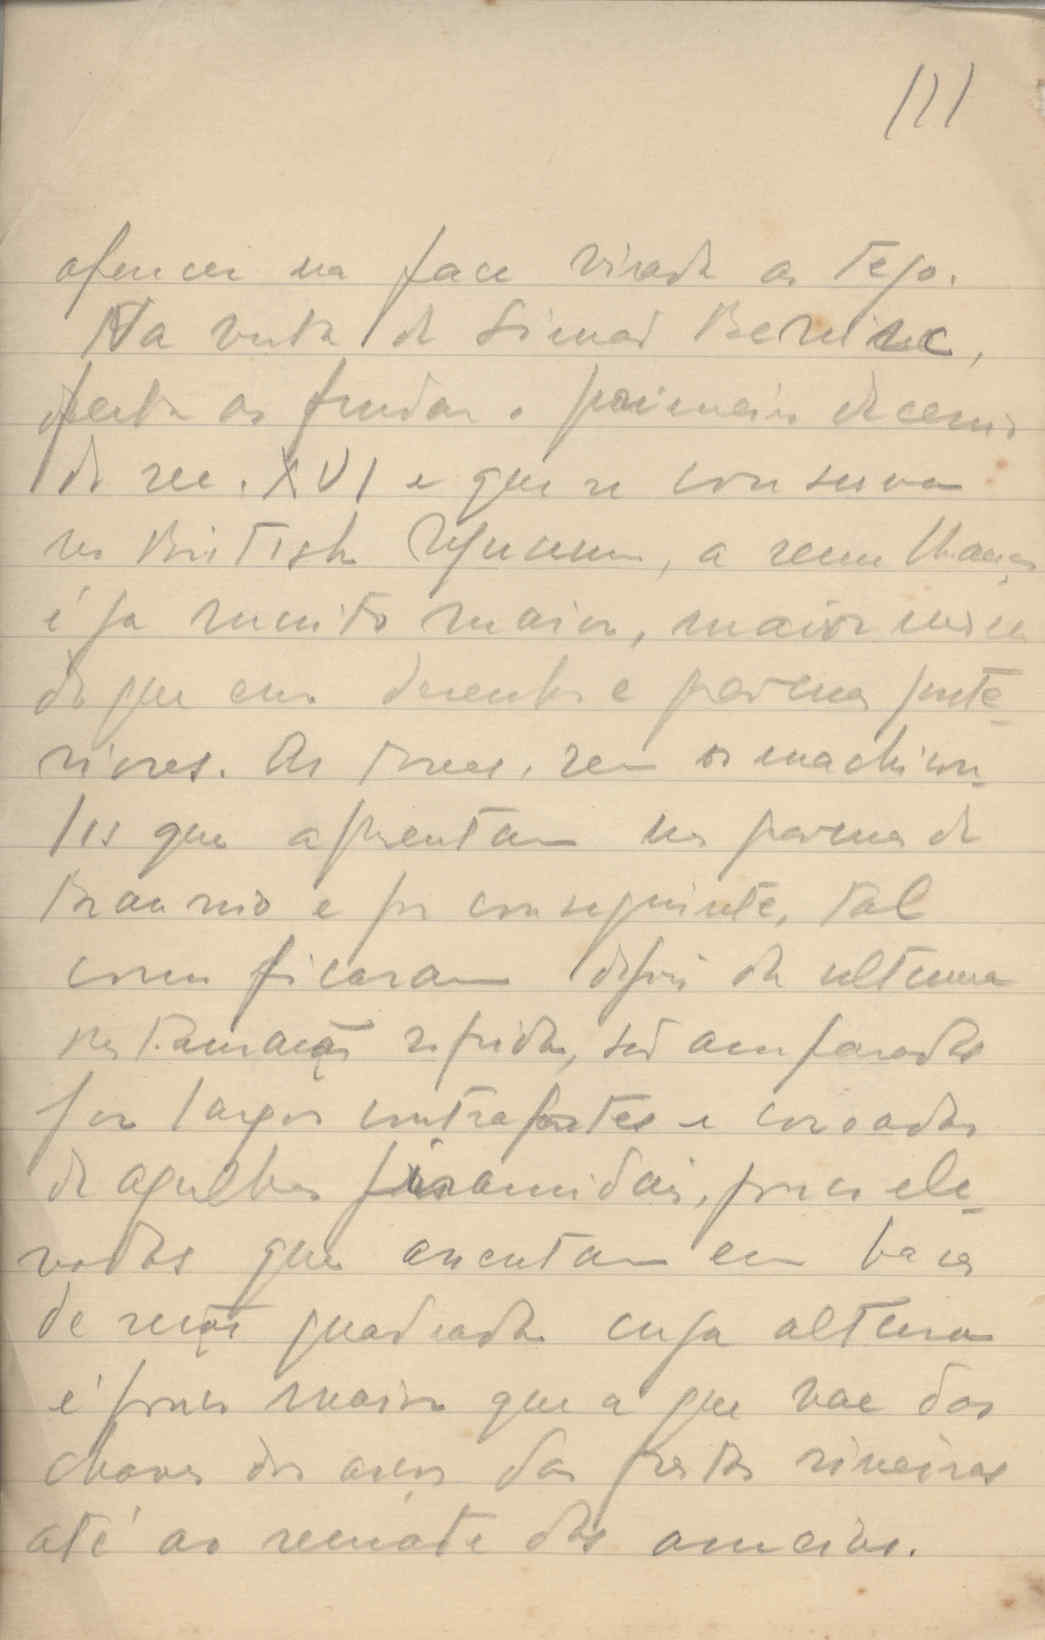 111
apenas na face virada ao Tejo.
Na vista de Simão Bening,
feita ao findar o primeiro decenio
do sec. XVI e que se conserva
no British Museum, a semelhança
é ja muito maior, maior mesmo
do que em desenhos e poste-
riores. As torres, sem os machicou-
lis que apresentam na de
e por conseguinte, tal
como ficaram depois da ultima
restauração referida, são amparadas
por largos contrafortes e coroadas
de agulhas piramidais, pouco ele-
vadas que assentam em bases
de secção quadrada cuja altura
é pouco maior que a que vae dos
chaves dos arcos das frestas sineiras
até ao remate das ameias.